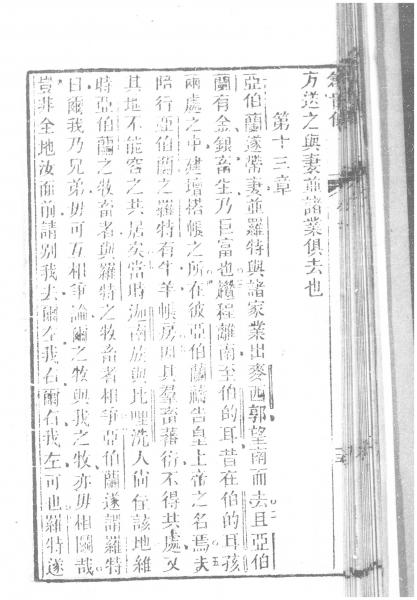 方送之與妻並諸業俱去也
第十三章
亞伯蘭遂帶妻並羅特與諸家業出麥西郭望南而去且亞伯
蘭有金銀畜生乃巨富也。程離南至伯的耳昔在伯的耳。
兩處之中建壇搭帳之所在彼亞伯蘭禱告皇上帝之名焉夫
陪行亞伯蘭之羅特有牛羊帳房因其羣畜蕃衍不得其處又
其地不能容之共居矣當時迦南族與比哩洗人尚在該地維
時亞伯蘭之牧畜者與羅特之牧畜者相爭亞伯蘭遂謂羅特
曰爾我乃兄弟毋可互相爭論爾之牧與我之牧亦毋相鬬哉
豈非全地汝面前請別我去爾左我右爾右我左可也羅特遂